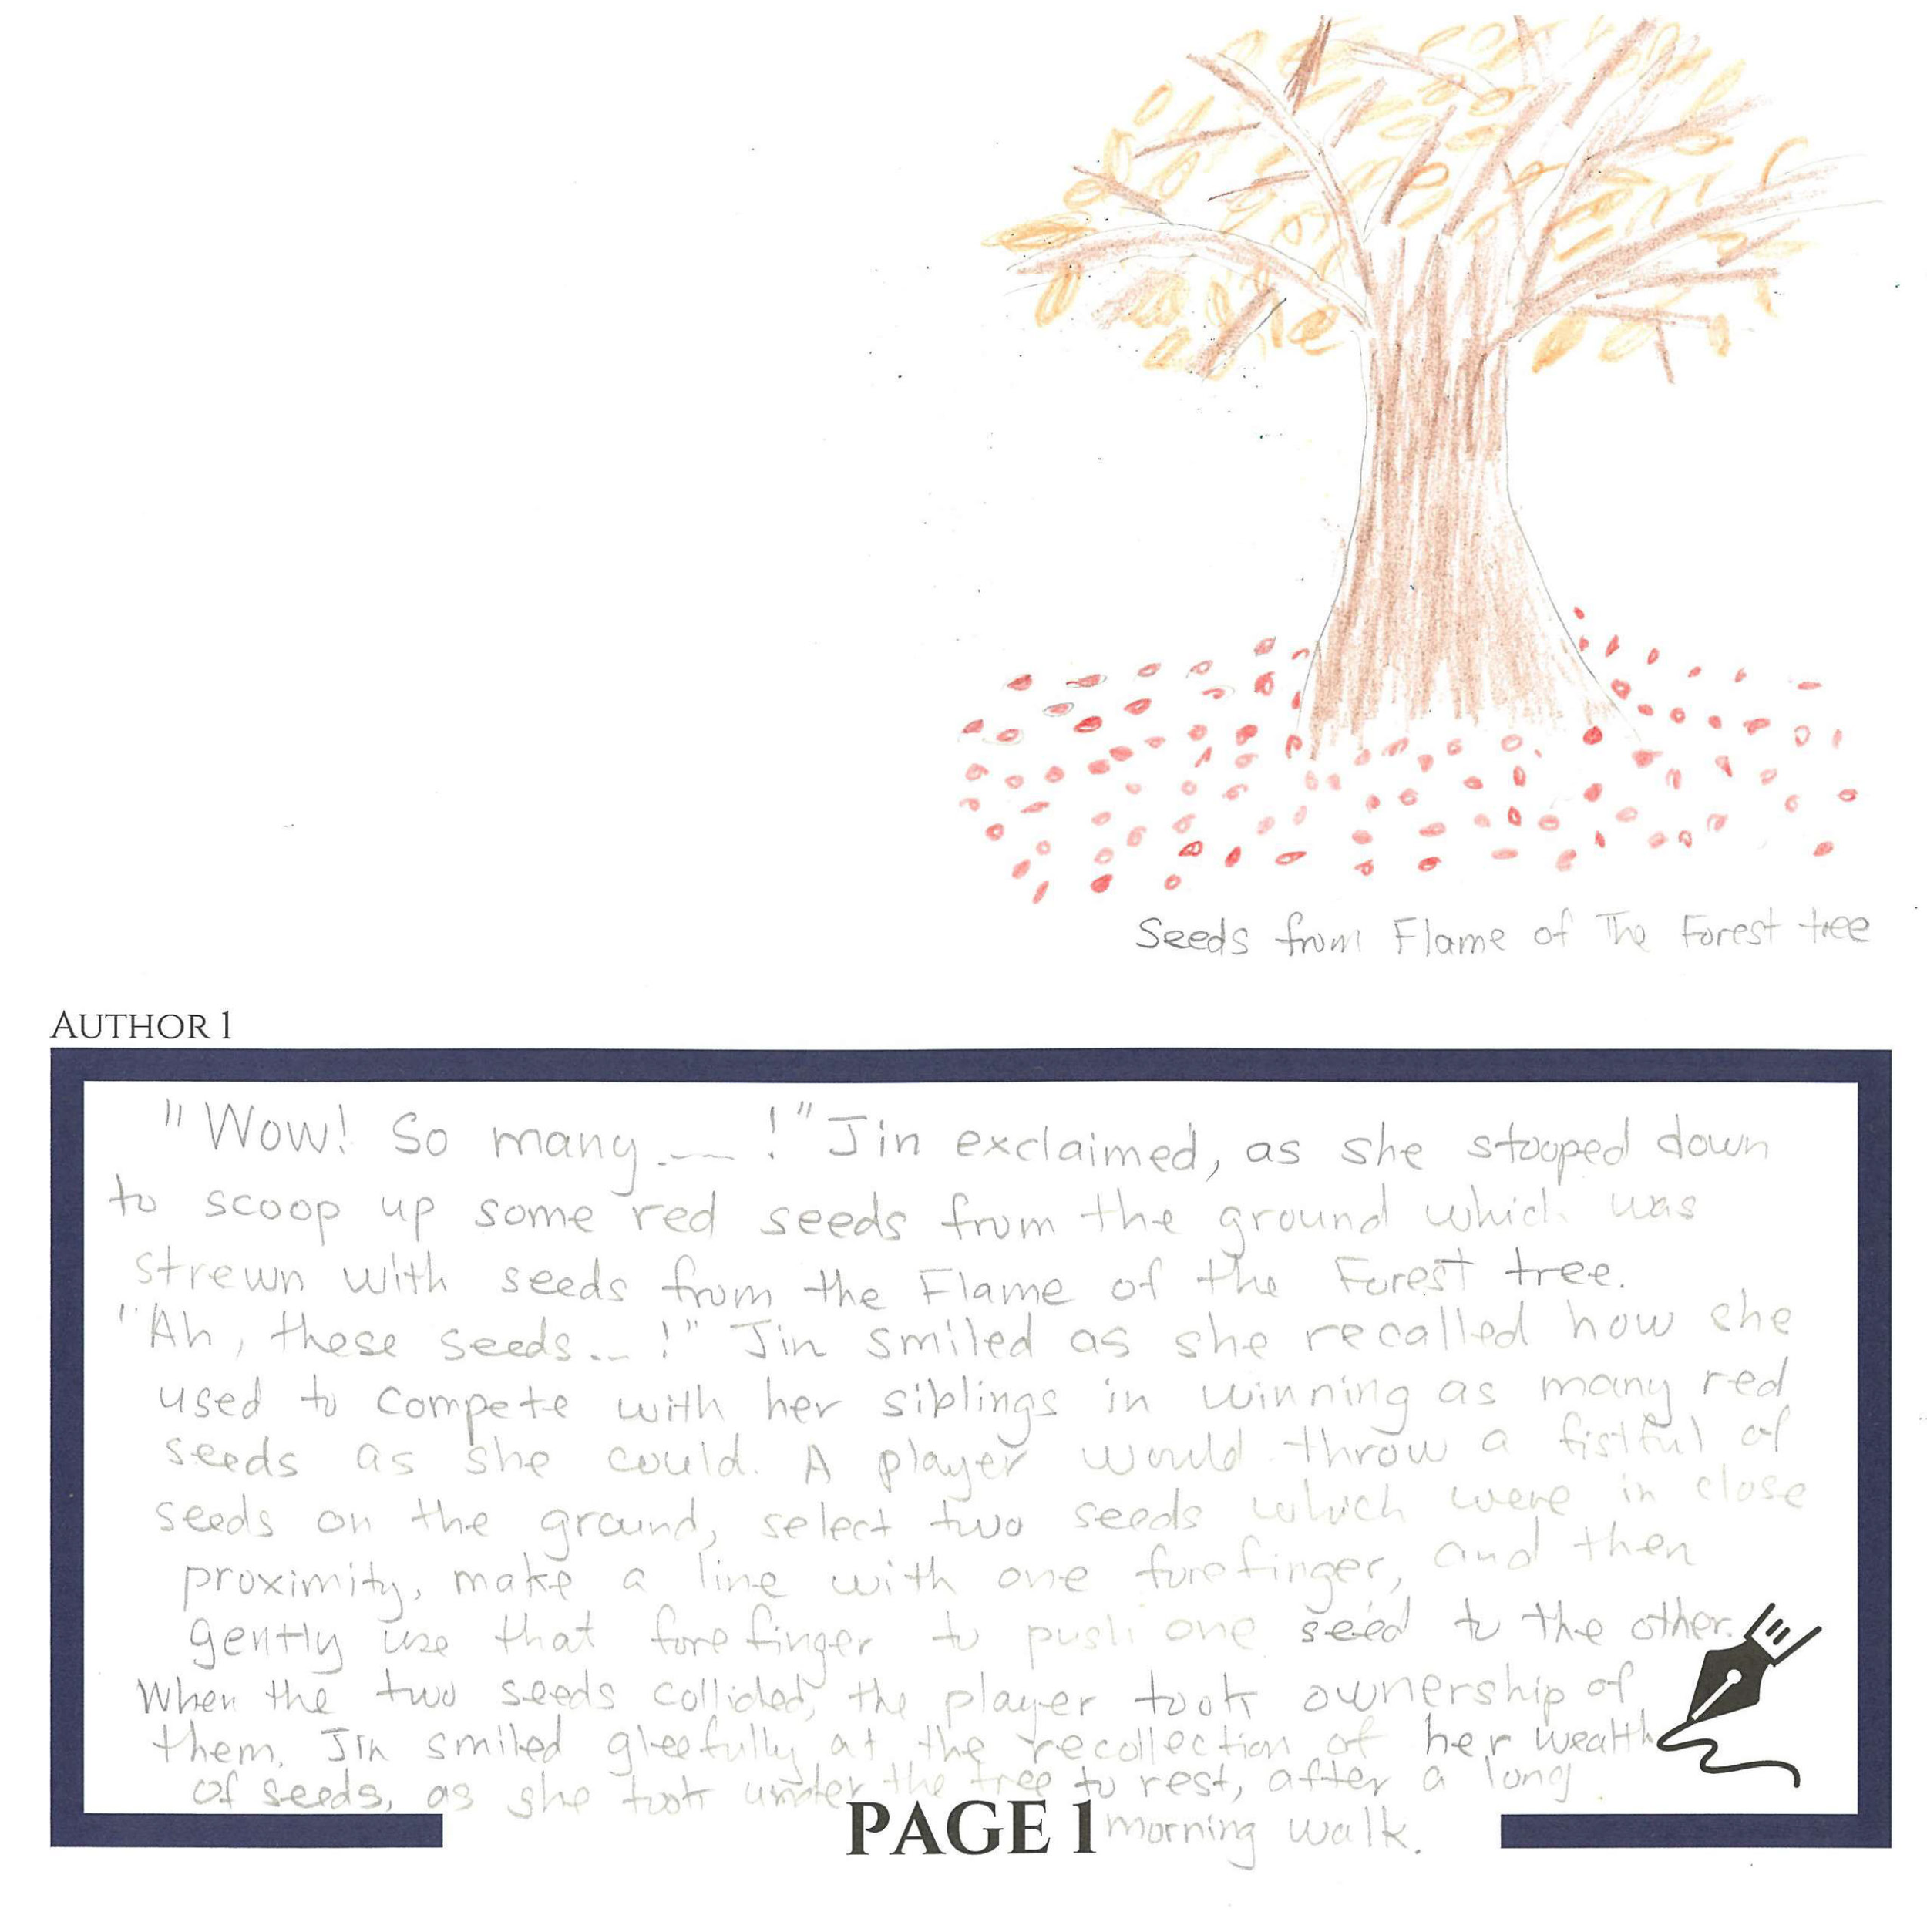 Seeds from Flame of The Forest tree
AUTHOR 1
"Wow! So many...!" Jin exclaimed, as she stooped down
to scoop up some red seeds from the ground which was
strewn with seeds from the Flame of the Forest tree.
"Ah, these seeds...!" Jin smiled as she recalled how she
used to compete with her siblings in winning as many red
seeds as she could. A player would throw a fistful of
seeds on the ground, select two seeds which were in close
proximity, make a line with one forefinger, and then
gently use that forefinger to push one seed to the other.
When the two seeds collided, the player took ownership of
them. Jin smiled gleefully at the recollection of her wealth
of seeds, as she took under the tree to rest, after a long
PAGE 1 morning walk.